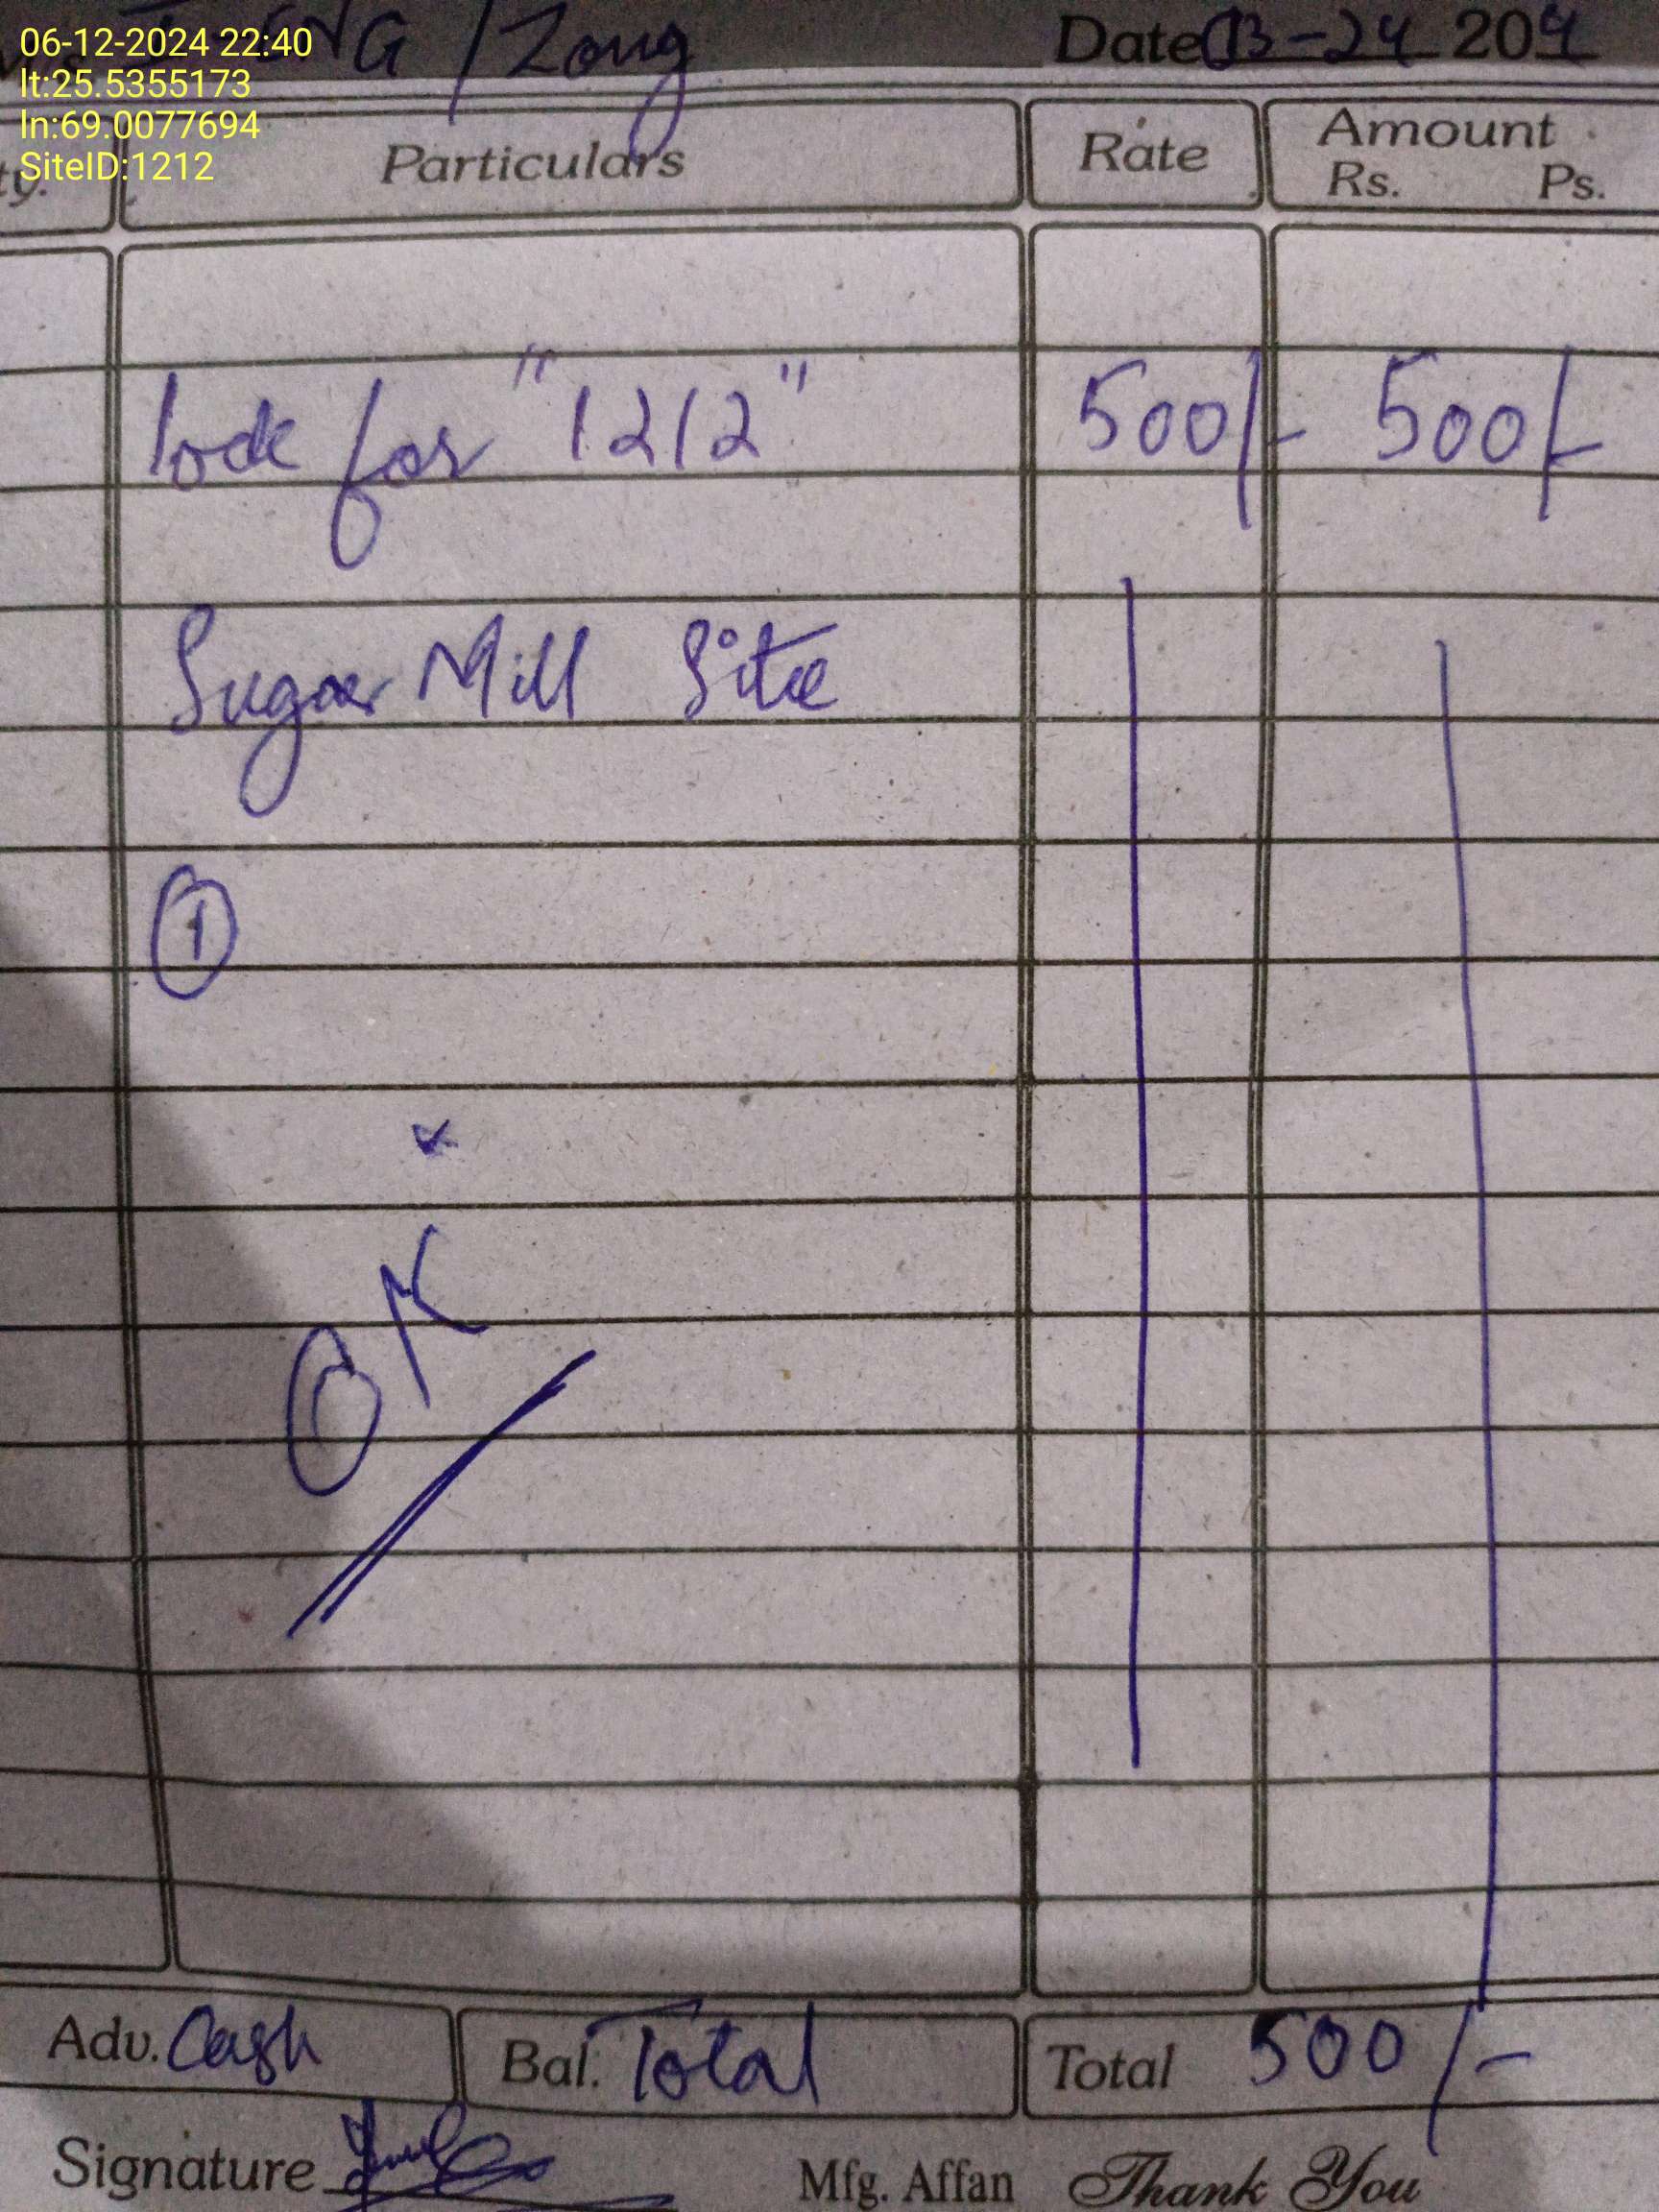 06-12-2024 22:40
lt:25.5355173
ln:69.0077694
SiteID:1212
NG / Zong
Date 13-24 204
ty. Particulars Rate Amount
Rs. Ps.
lock for "1212" 500/- 500/-
Sugar Mill Site
1
OK
Adv. Cash Bal. Total Total 500/-
Signature Mfg. Affan Thank You